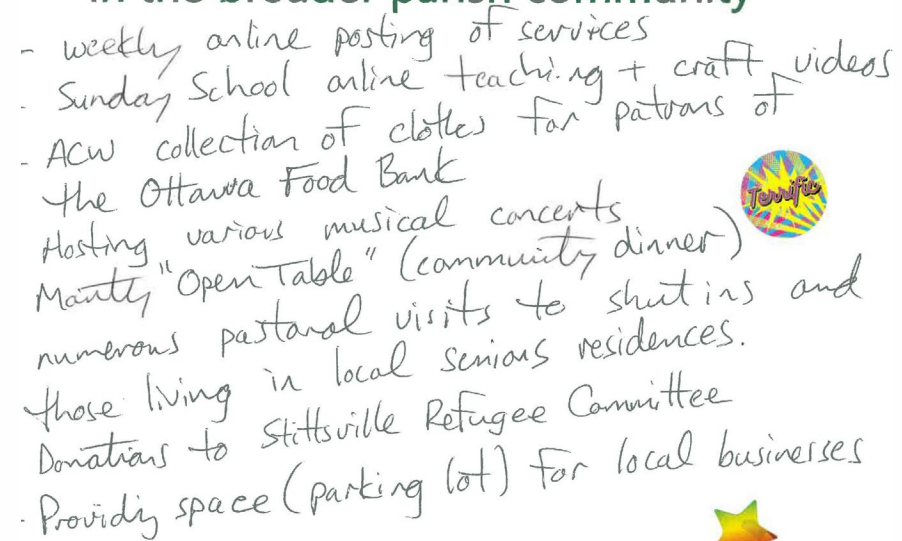 in the broader parish community
- weekly online posting of services
- Sunday School online teaching + craft videos
- ACW collection of clothes for patrons of
the Ottawa Food Bank
Hosting various musical concerts
Terrific
Montly "Open Table" (community dinner)
numerous pastoral visits to shut ins and
those living in local seniors residences.
Donations to Stittsville Refugee Committee
- Providing space (parking lot) for local businesses